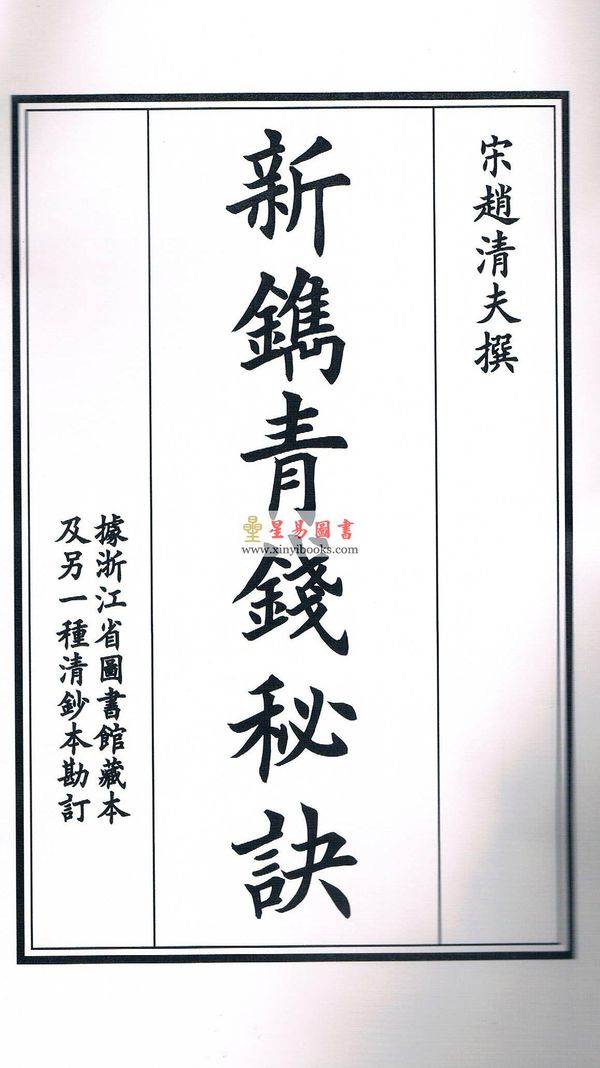 宋趙清夫撰
新鐫青錢秘訣
據浙江省圖書館藏本
及另一種清鈔本勘訂
星易圖書
www.xinyibooks.com